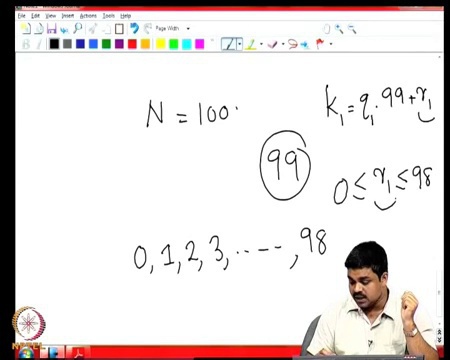 File Edit View Insert Actions Tools Help
Page Width
N = 100.
k₁ = q₁.99 + r₁
99
0 ≤ r₁ ≤ 98
0, 1, 2, 3, ......, 98